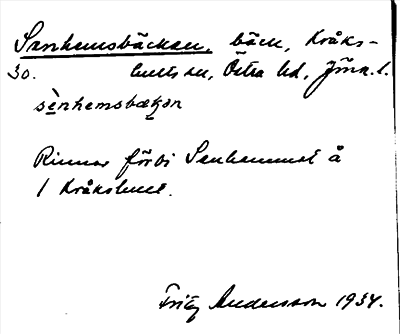 Senhemsbäcken, bäck, Kråks-
30. hults sn, Östra hd, Jönk. l.
sènhemsbækən
Rinner förbi Senhemmet å
1 Kråkshult.
Fritz Andersson 1934.